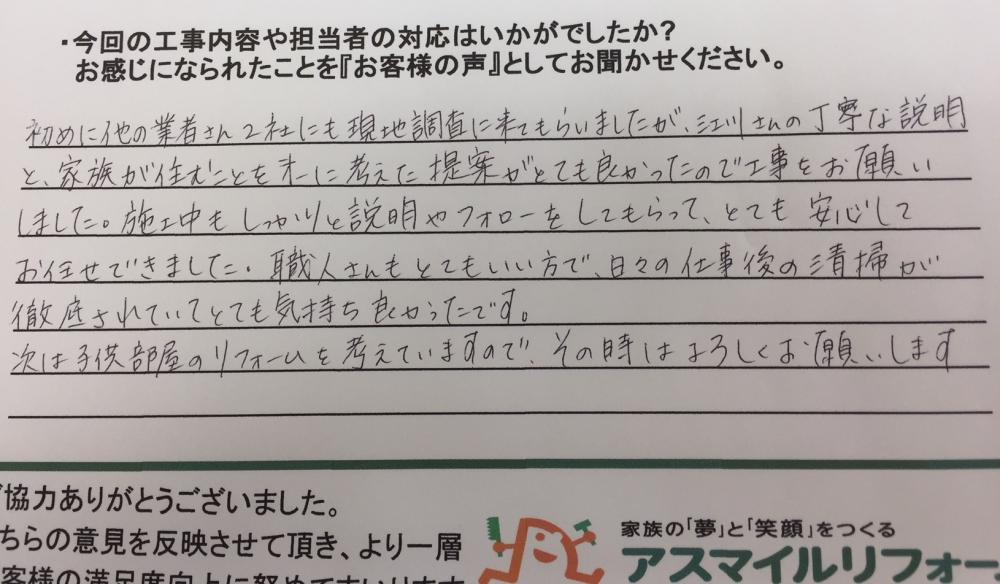 ・今回の工事内容や担当者の対応はいかがでしたか?
お感じになられたことを『お客様の声』としてお聞かせください。
初めに他の業者さん2社にも現地調査に来てもらいましたが、江川さんの丁寧な説明
と、家族が住むことを オ一に考えた提案がとても良かったので工事をお願い
しました。施工中もしっかりと説明やフォローをしてもらって、とても 安心して
お任せできました。職人さんもとてもいい方で、日々の仕事後の清掃が
徹底されていてとても気持ち良かったです。
次は子供部屋のリフォームを考えていますので、その時はよろしくお願いします
ご協力ありがとうございました。
ちらの意見を反映させて頂き、より一層
客様の満足度向上に努めてまいります
家族の「夢」と「笑顔」をつくる
アスマイルリフォー